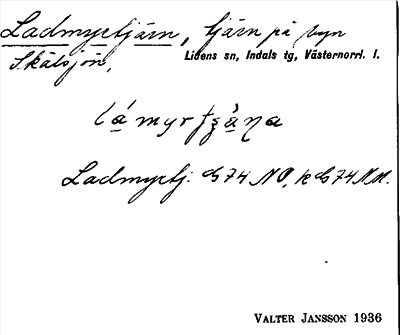 Ladmyrtjärn, tjärn på byn
Skälsjön, Lidens sn, Indals tg, Västernorrl. l.
Ladmyrtj. G 74 NO, k G 74 NV.
VALTER JANSSON 1936